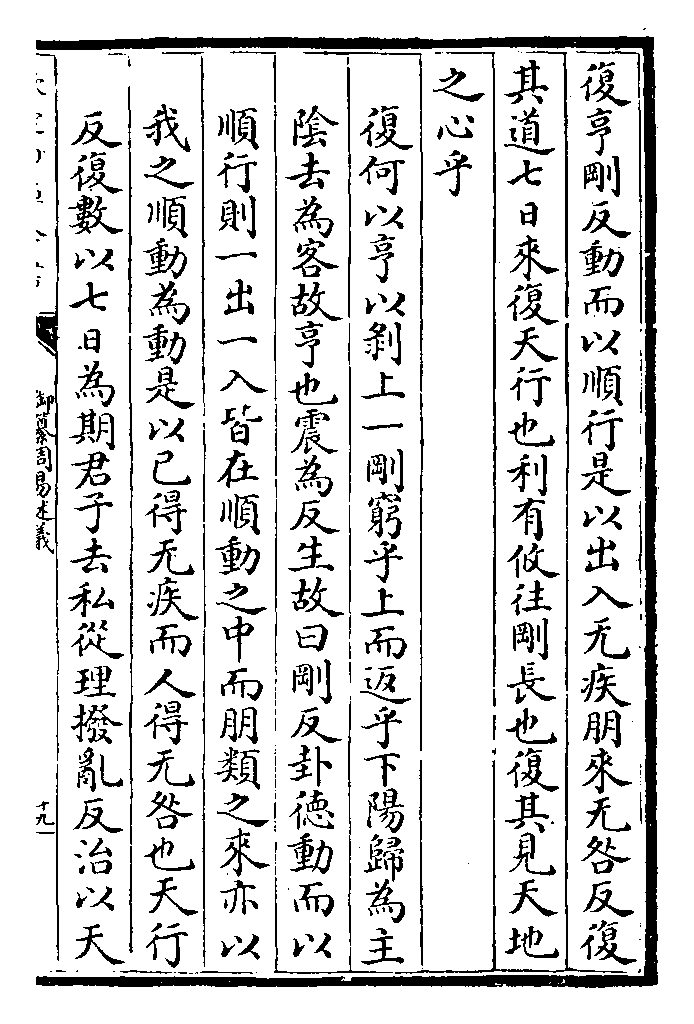 復亨剛反動而以順行是以出入无疾朋來无咎反復
其道七日來復天行也利有攸往剛長也復其見天地
之心乎
復何以亨以剥上一剛窮乎上而返乎下陽歸為主
陰去為客故亨也震為反生故曰剛反卦德動而以
順行則一出一入皆在順動之中而朋類之來亦以
我之順動為動是以已得无疾而人得无咎也天行
反復數以七日為期君子去私從理撥亂反治以天
御纂周易述義
十九